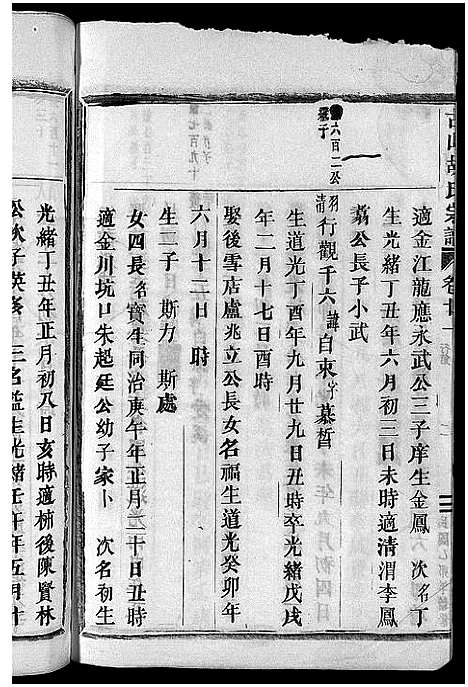 古山胡氏宗譜 卷廿一
適金江龍應永武公三子庠生金鳳 次名丁
生光緒丁丑年六月初三日未時適清渭李鳳
翥公長子小武
六百二公
羽清行觀千六諱自東字慕晳
生道光丁酉年九月廿九日丑時卒光緒戊戌
年二月十七日酉時
娶後雪店盧兆立公長女名福生道光癸卯年
六月十二日 時
生二子 斯力 斯處
女四長名寶生同治庚午年正月二十日丑時
適金川坑口朱起廷公幼子家卜 次名初生
光緒丁丑年正月初八日亥時適柿後陳賢林
公次子英 三名 生光緒壬午年五月十